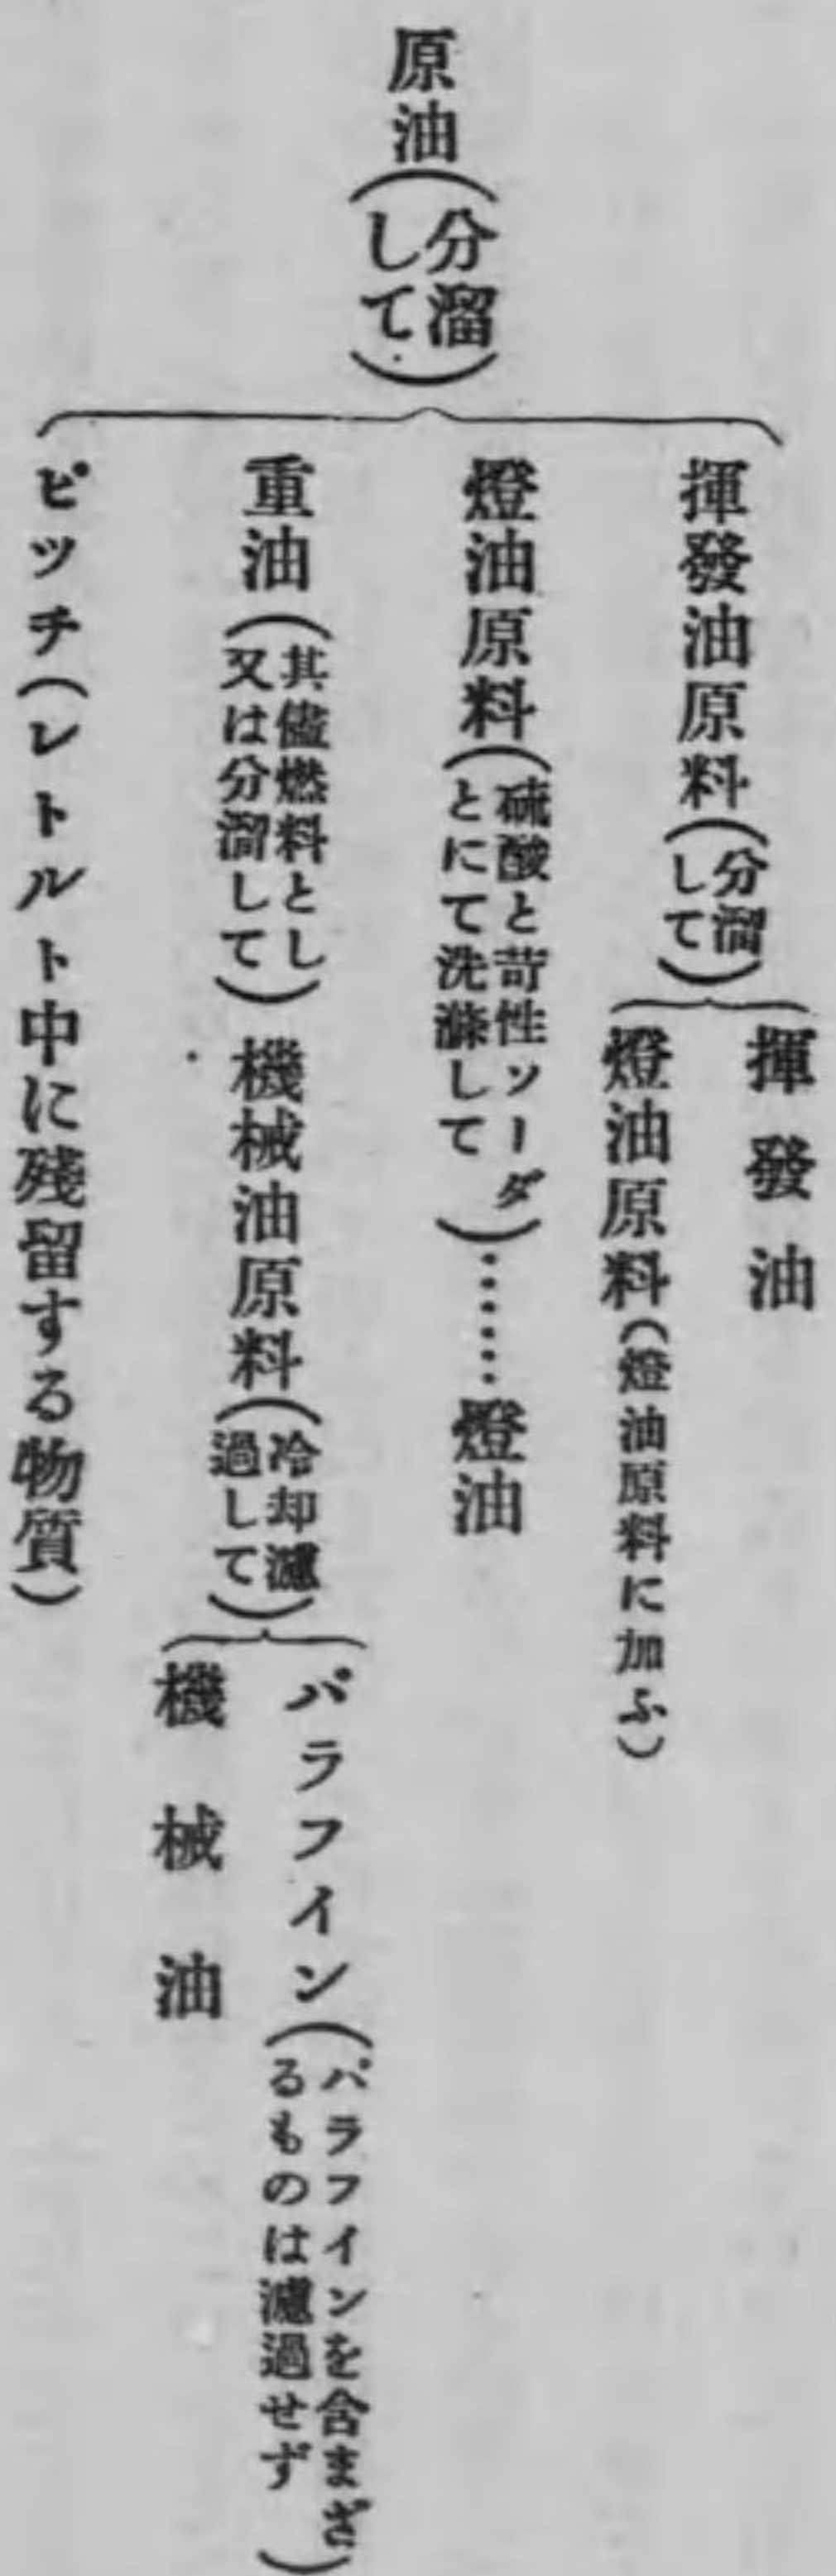 原油(分溜して)
揮發油原料(分溜して)
揮發油
燈油原料(燈油原料に加ふ)
燈油原料(硫酸と苛性ソーダとにて洗滌して)……燈油
重油(其儘燃料とし又は分溜して)機械油原料(冷却濾過して)
パラフイン(パラフインを含まざるものは濾過せず)
機械油
ピッチ(レトルト中に殘留する物質)